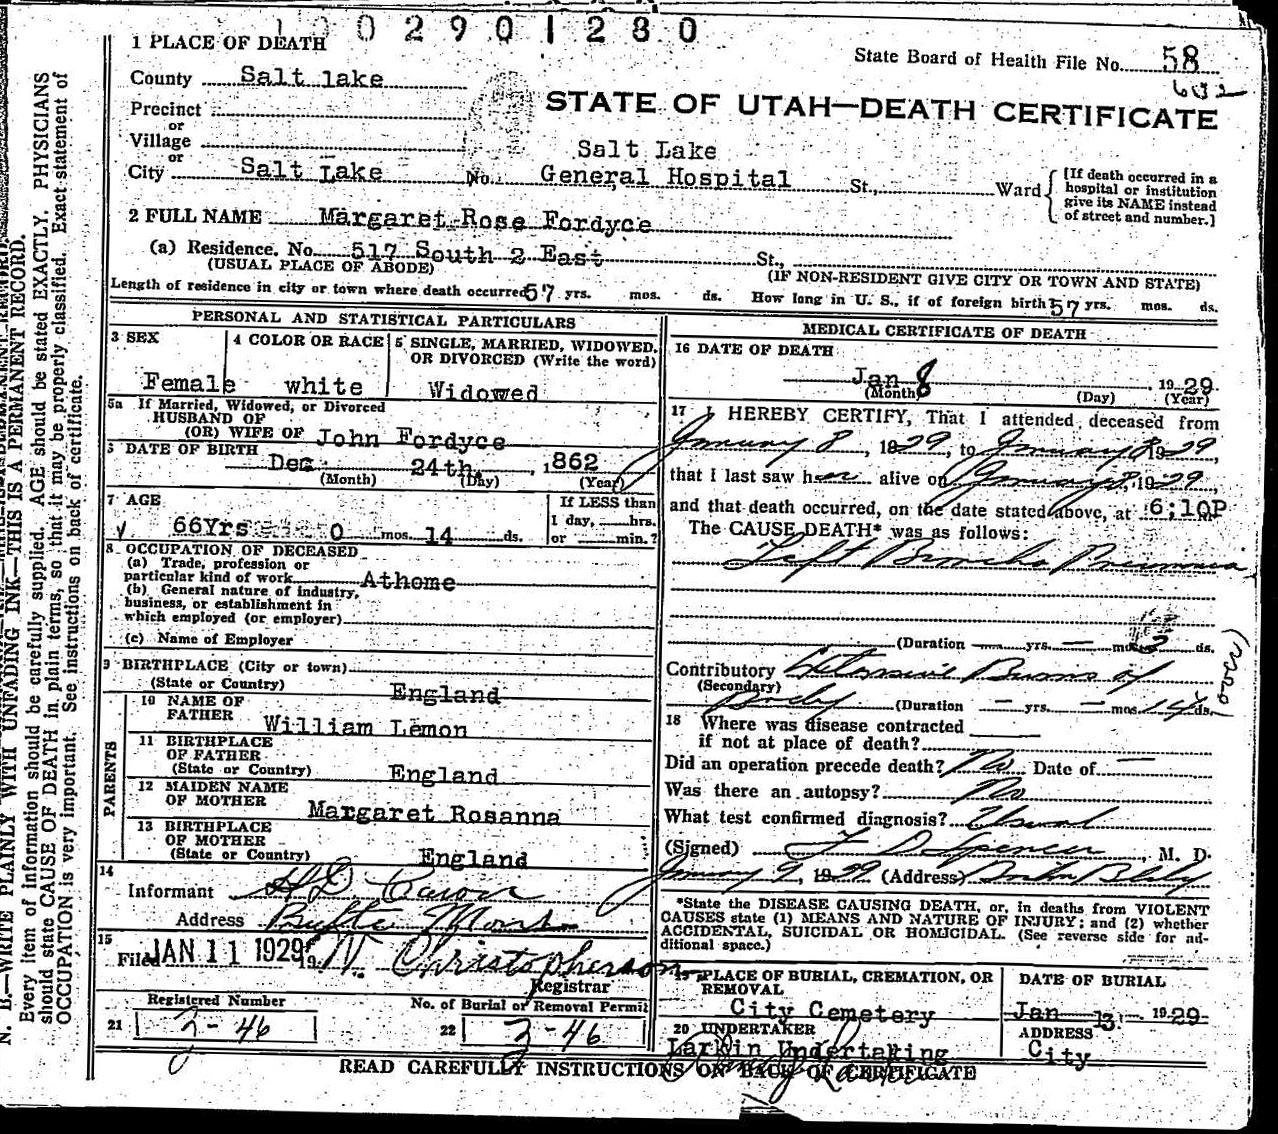 1002901230
1 PLACE OF DEATH
State Board of Health File No. 58
County Salt lake
632
Precinct
STATE OF UTAH—DEATH CERTIFICATE
or
Village
or
Salt Lake
City Salt Lake No. General Hospital St., Ward
[If death occurred in a
hospital or institution
give its NAME instead
of street and number.]
2 FULL NAME Margaret Rose Fordyce
(a) Residence. No. 517 South 2 East St.,
(USUAL PLACE OF ABODE)
(IF NON-RESIDENT GIVE CITY OR TOWN AND STATE)
Length of residence in city or town where death occurred 57 yrs. mos. ds. How long in U. S., if of foreign birth 57 yrs. mos. ds.
PERSONAL AND STATISTICAL PARTICULARS
3 SEX
Female
4 COLOR OR RACE
white
5 SINGLE, MARRIED, WIDOWED,
OR DIVORCED (Write the word)
Widowed
5a If Married, Widowed, or Divorced
HUSBAND OF
(OR) WIFE OF John Fordyce
6 DATE OF BIRTH
Dec 24th, 1862
(Month) (Day) (Year)
7 AGE
66Yrs 0 mos. 14 ds.
If LESS than
1 day, hrs.
or min.?
8 OCCUPATION OF DECEASED
(a) Trade, profession or
particular kind of work Athome
(b) General nature of industry,
business, or establishment in
which employed (or employer)
(c) Name of Employer
9 BIRTHPLACE (City or town)
(State or Country) England
PARENTS
10 NAME OF
FATHER William Lemon
11 BIRTHPLACE
OF FATHER
(State or Country) England
12 MAIDEN NAME
OF MOTHER Margaret Rosanna
13 BIRTHPLACE
OF MOTHER
(State or Country) England
14
Informant
Address Butte Mont
15
Filed JAN 11 1929 19 N. Christopherson
Registrar
Registered Number
21 2-46
No. of Burial or Removal Permit
22 2-46
MEDICAL CERTIFICATE OF DEATH
16 DATE OF DEATH
Jan 8, 1929
(Month) (Day) (Year)
17 I HEREBY CERTIFY, That I attended deceased from
January 8, 1929, to January 8 1929,
that I last saw her alive on January 8, 1929,
and that death occurred, on the date stated above, at 6;10P
The CAUSE DEATH* was as follows:
Left Broncho Pneumonia
(Duration yrs. — mos. 2 ds.
Contributory Extensive Burns of
(Secondary)
Body (Duration — yrs. — mos. 14 ds.
(over)
18 Where was disease contracted
if not at place of death?
Did an operation precede death? No Date of —
Was there an autopsy? No
What test confirmed diagnosis? Usual
(Signed) F D Spencer, M. D.
January 9, 1929 (Address) Boston Bldg
*State the DISEASE CAUSING DEATH, or, in deaths from VIOLENT
CAUSES state (1) MEANS AND NATURE OF INJURY; and (2) whether
ACCIDENTAL, SUICIDAL OR HOMICIDAL. (See reverse side for ad-
ditional space.)
19 PLACE OF BURIAL, CREMATION, OR
REMOVAL
City Cemetery
DATE OF BURIAL
Jan 13 1929
20 UNDERTAKER
Larkin Undertaking
ADDRESS
City
READ CAREFULLY INSTRUCTIONS ON BACK OF CERTIFICATE
N. B.—WRITE PLAINLY WITH UNFADING INK—THIS IS A PERMANENT RECORD.
Every item of information should be carefully supplied. AGE should be stated EXACTLY. PHYSICIANS
should state CAUSE OF DEATH in plain terms, so that it may be properly classified. Exact statement of
OCCUPATION is very important. See instructions on back of certificate.